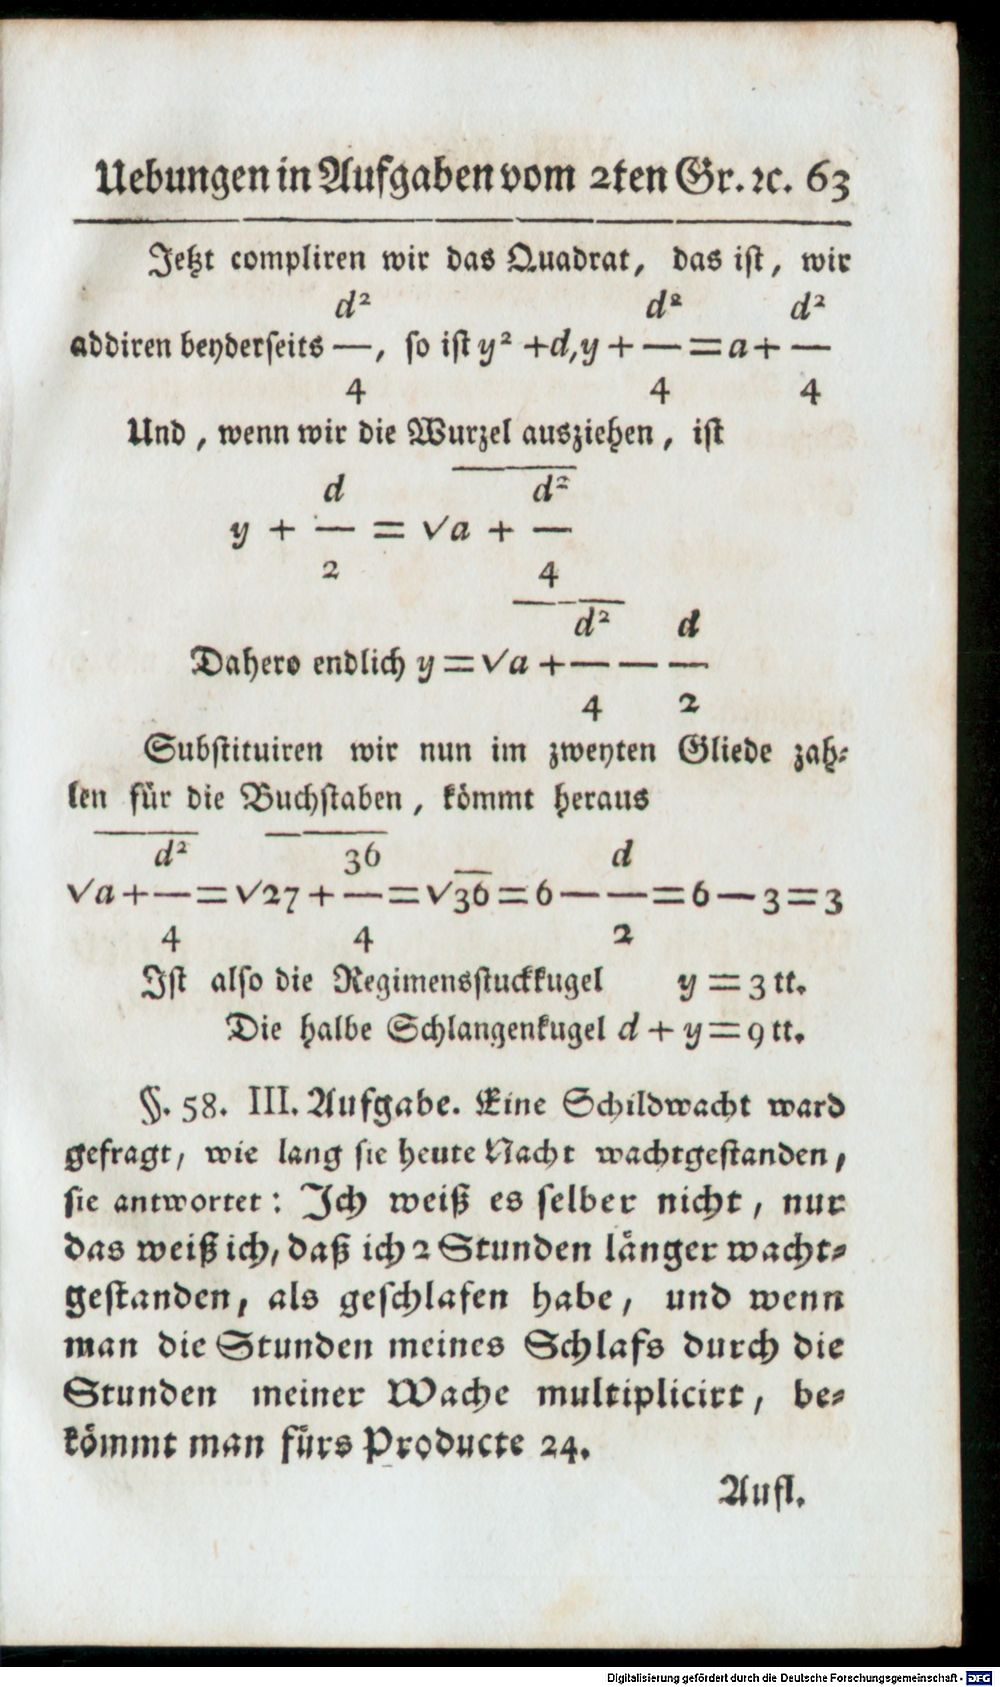 Uebungen in Aufgaben vom 2ten Gr. ꝛc. 63
Jetzt compliren wir das Quadrat, das ist, wir
d² d² d²
addiren beyderseits —, so ist y² + d,y + — = a + —
4 4 4
Und, wenn wir die Wurzel ausziehen, ist
d d²
y + — = √a + —
2 4
d² d
Dahero endlich y = √a + — — —
4 2
Substituiren wir nun im zweyten Gliede zah⸗
len für die Buchstaben, kömmt heraus
d² 36 d
√a + — = √27 + — = √36 = 6 — — = 6 — 3 = 3
4 4 2
Ist also die Regimensstuckkugel y = 3 tt.
Die halbe Schlangenkugel d + y = 9 tt.
§. 58. III. Aufgabe. Eine Schildwacht ward
gefragt, wie lang sie heute Nacht wachtgestanden,
sie antwortet: Ich weiß es selber nicht, nur
das weiß ich, daß ich 2 Stunden länger wacht⸗
gestanden, als geschlafen habe, und wenn
man die Stunden meines Schlafs durch die
Stunden meiner Wache multiplicirt, be⸗
kömmt man fürs Producte 24.
Aufl.
Digitalisierung gefördert durch die Deutsche Forschungsgemeinschaft - DFG